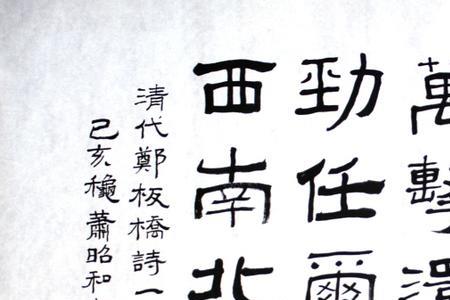 萬擊還
勁任爾
西南北
清代鄭板橋詩一
己亥穐蕭昭和